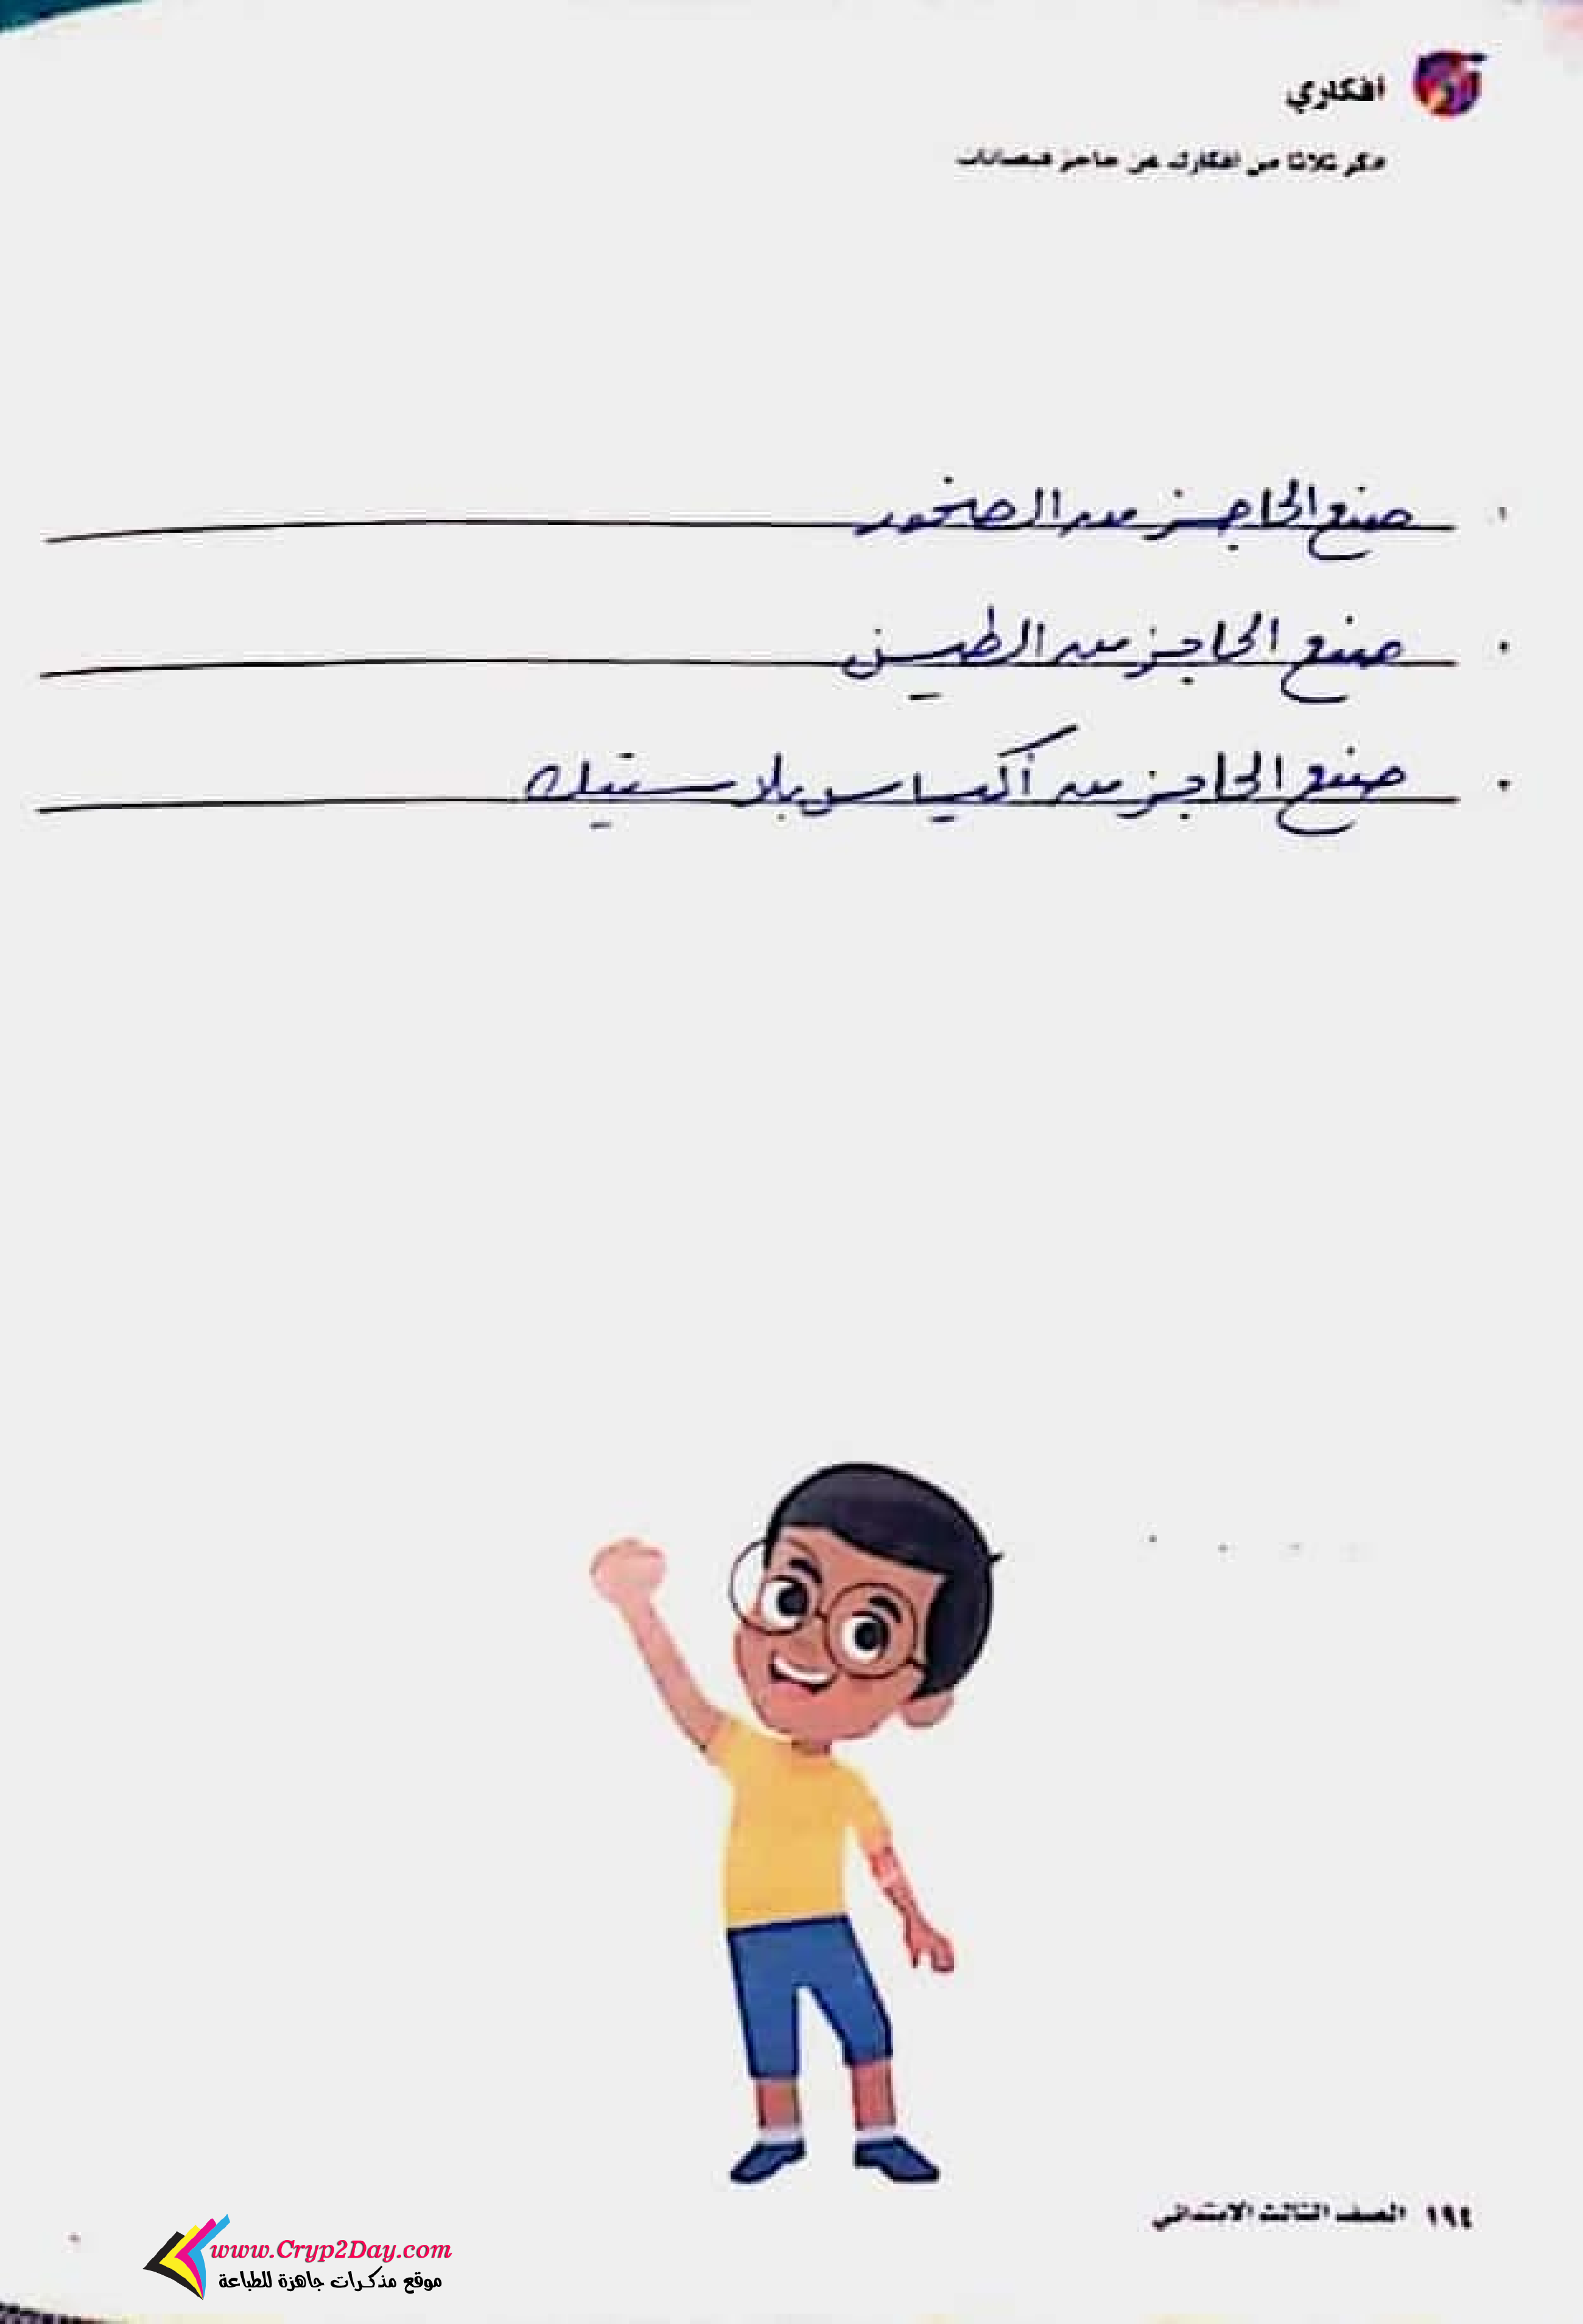 أفكاري
فكر ثلاثا من أفكارك عن حاجز فيضانات
١. صنع الحاجز من الصخور
• صنع الحاجز من الطين
• صنع الحاجز من أكياس بلاستيك
١٩٤ الصف الثالث الابتدائي
www.Cryp2Day.com
موقع مذكرات جاهزة للطباعة